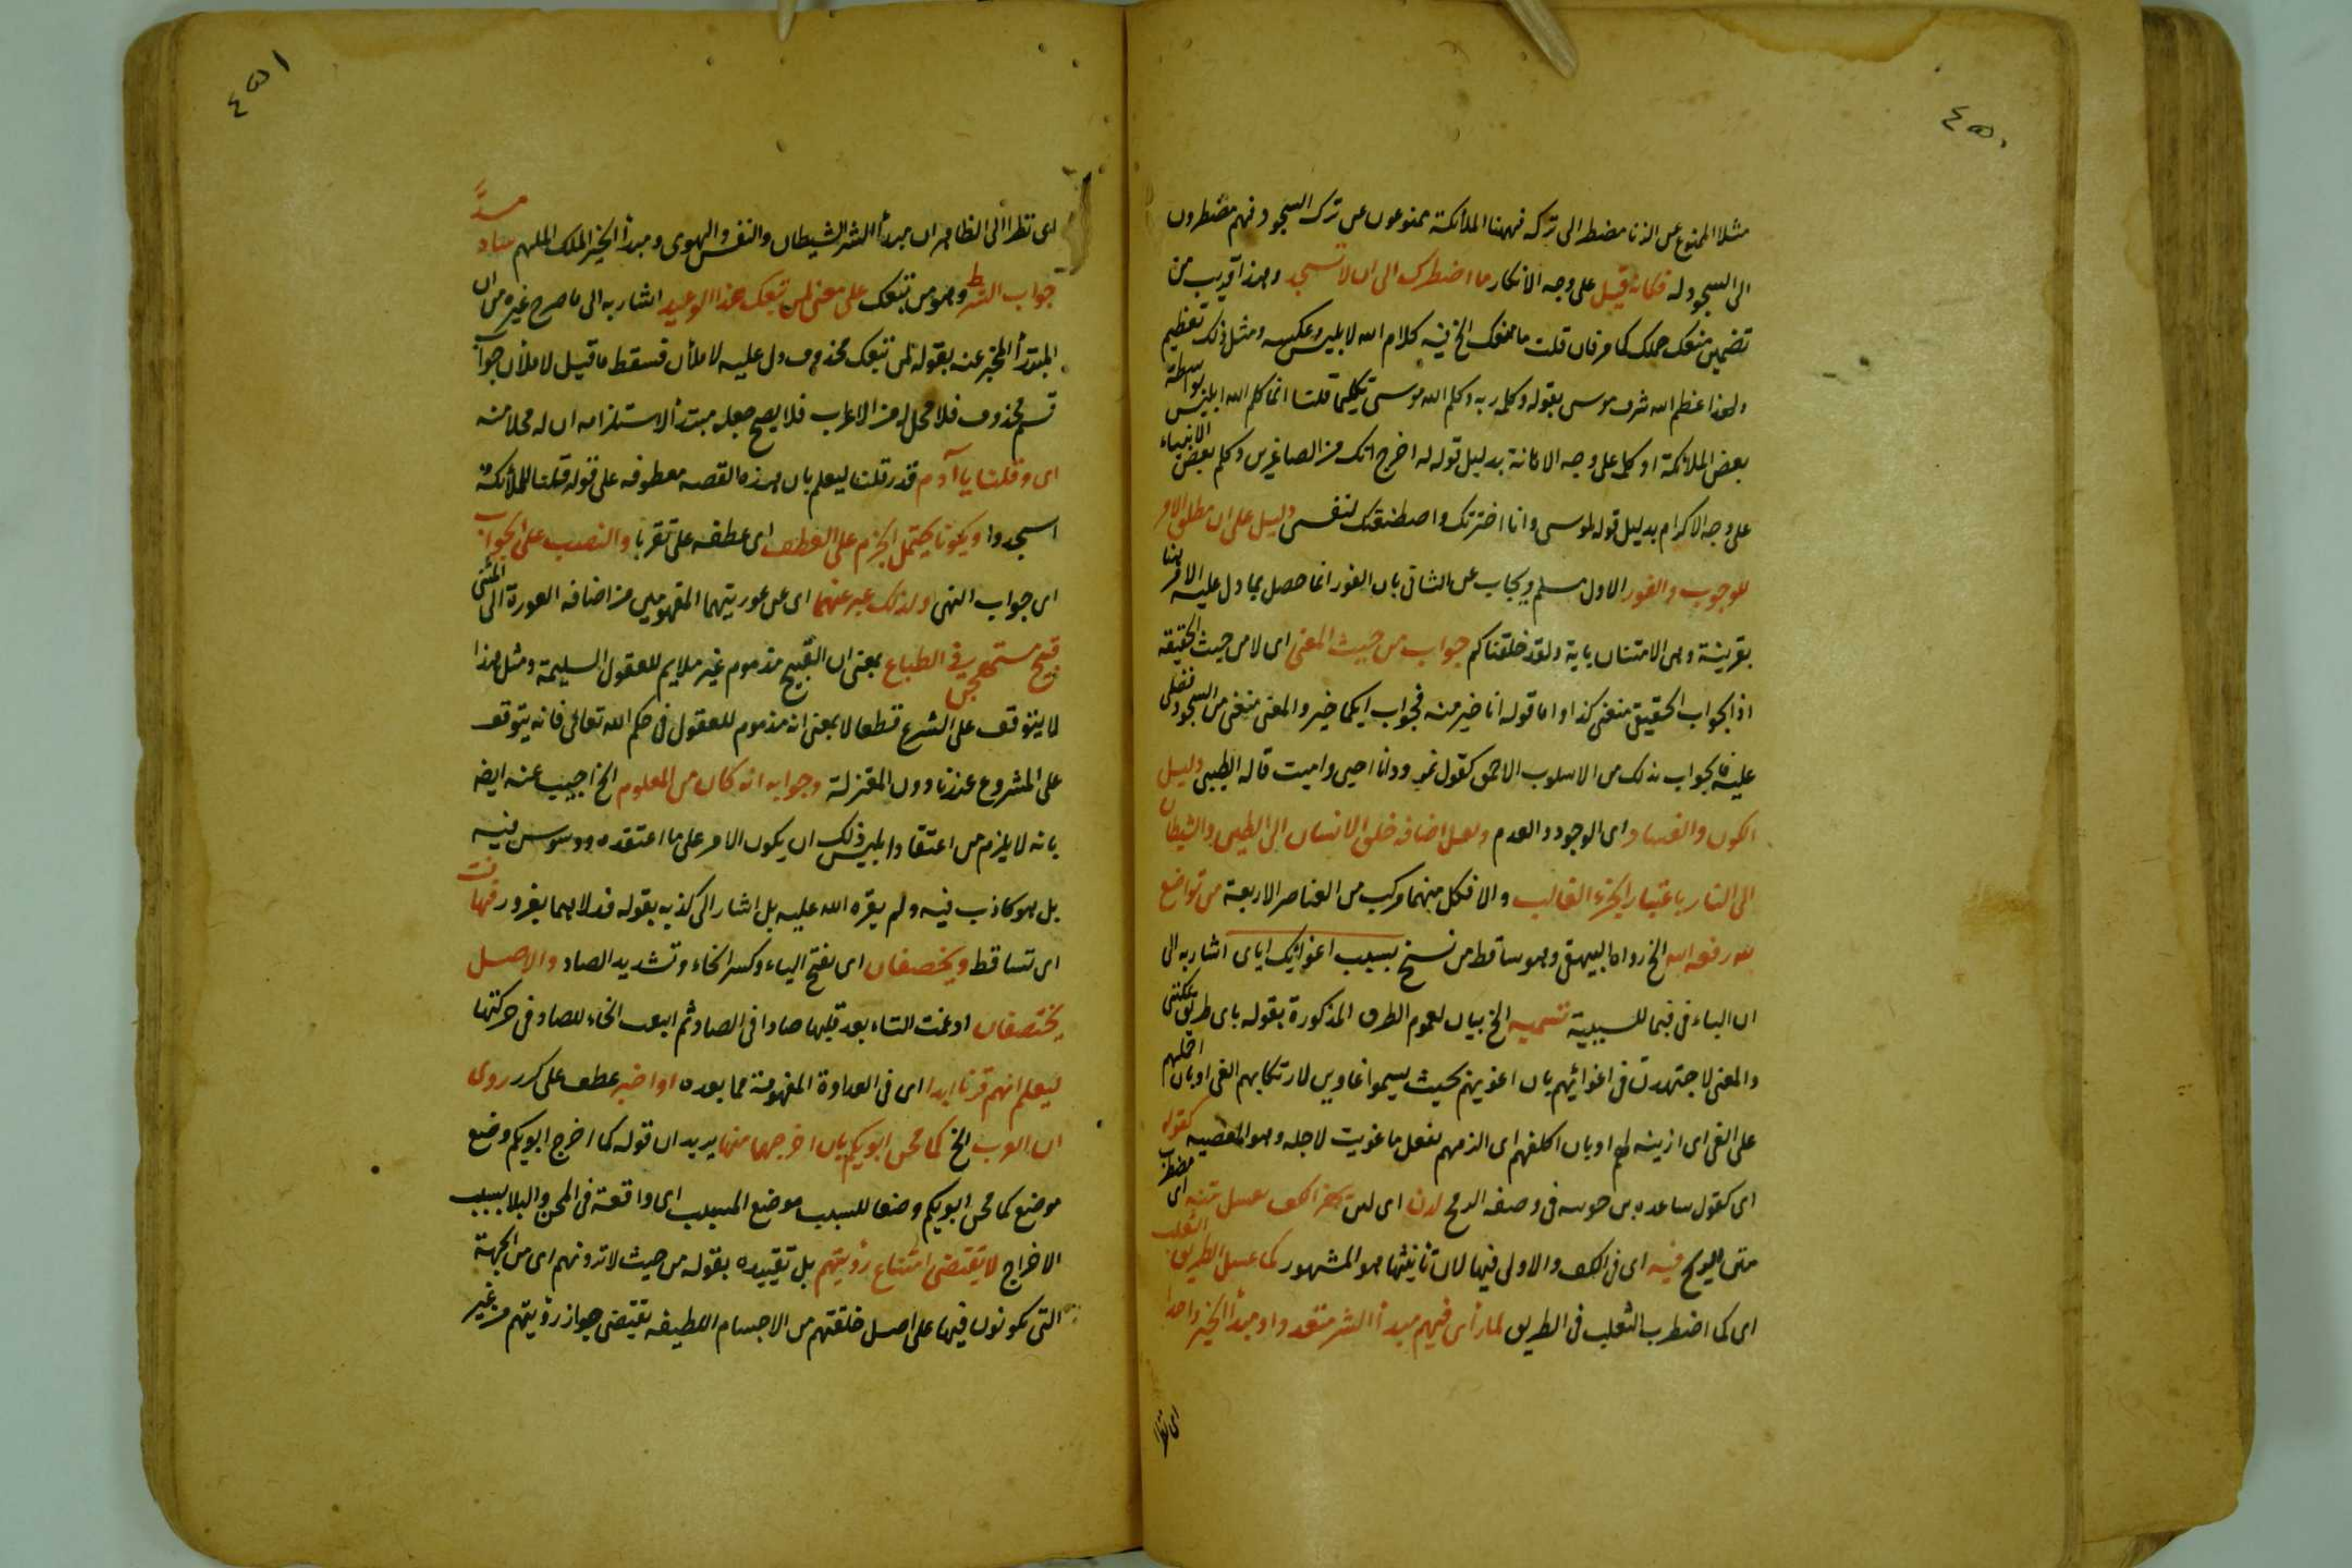 ٤٥٠
مثلا الممنوع عن الزنا مضطر الى تركه فههنا الملائكة ممنوعون عن ترك السجود فهم مضطرون
الى السجود له فكانه قيل على وجه الانكار ما اضطرك الى ان لا تسجد وهذا قريب من
تضمين منعك حملك كما مر فان قلت ما منعك الخ فيه كلام الله لابليس وعكسه ومثل ذلك تعظيم
ولهذا عظم الله شرف موسى بقوله وكلمه ربه وكلم الله موسى تكليما قلنا انما كلم الله ابليس بواسطة
بعض الملائكة او كلم على وجه الاهانة بدليل قوله له اخرج انك من الصاغرين وكلم بعض الانبياء
على وجه الاكرام بدليل قوله لموسى وانا اخترتك واصطنعتك لنفسى دليل على ان مطلق الامر
للوجوب والفور الاول مسلم ويجاب عن الثانى بان الفور انما حصل بما دل عليه الامر هنا
بقرينة وهى الامتنان باية ولقد خلقناكم جواب من حيث المعنى اى لا من حيث الحقيقة
اذ الجواب الحقيقى منعنى كذا واما قوله انا خير منه فجواب ايكما خير والمعنى منعنى من السجود فضلى
عليه فالجواب بذلك من الاسلوب الاحمق كقول نمرود انا احيى واميت قاله الطيبى دليل
الكون والفساد اى الوجود والعدم ولعل اضافة خلق الانسان الى الطين والشيطان
الى النار باعتبار الجزء الغالب والا فكل منهما مركب من العناصر الاربعة من تواضع
لله رفعه الله الخ رواه البيهقى وهو ساقط من نسخ بسبب اغوائك اياى اشار به الى
ان الباء فى فبما للسببية تسمية الخ بيان لعموم الطرق المذكورة بقوله باى طريق يمكننى
والمعنى لاجتهدن فى اغوائهم بان اغوينهم بحيث يسموا غاوين لارتكابهم الغى او بان احملهم
على الغى اى ازينه لهم او بان اكلفهم اى الزمهم بفعل ما غويت لاجله وهو المعصية كقوله
اى كقول ساعدة بن جوية فى وصف الرمح لدن اى لين بهز الكف يعسل متنه اى مضطرب
متن الرمح فيه اى فى الكف والاولى فيها لان تانيثها هو المشهور كما عسل الطريق الثعلب
اى كما اضطرب الثعلب فى الطريق لما رأى فيهم مبدأ الشر متعددا ومبدأ الخير واحدا
اى نظرا
٤٥١
اى نظرا الى الظاهر ان مبدأ الشر الشيطان والنفس والهوى ومبدأ الخير الملك الملهم ساد مسد
جواب الشرط وهو من تبعك على معنى لمن تبعك هذا الوعيد اشار به الى ما صرح غيره من ان
المبتدأ المخبر عنه بقوله لمن تبعك محذوف دل عليه لاملأن فسقط ما قيل لاملأن جواب
قسم محذوف فلا محل له من الاعراب فلا يصح جعله مبتدأ لاستلزامه ان له محلا منه
اى وقلنا يا آدم قدر قلنا ليعلم بان هذه القصه معطوفه على قوله قلنا للملائكة
اسجدوا ويكونا يحتمل الجزم على العطف اى عطفه على تقربا والنصب على الجواب
اى جواب النهى ولذلك عبر عنهما اى عن عوريتهما المفهومين من اضافه العورة الى المثنى
قبيح مستهجن فى الطباع بمعنى ان القبيح مذموم غير ملايم للعقول السليمة ومثل هذا
لا يتوقف على الشرع قطعا لا بمعنى انه مذموم للعقول فى حكم الله تعالى فانه يتوقف
على المشروع عندنا دون المعتزلة وجوابه انه كان من المعلوم الخ اجيب عنه ايضا
بانه لا يلزم من اعتقاد ابليس ذلك ان يكون الامر على ما اعتقده ووسوس فيه
بل هو كاذب فيه ولم يقره الله عليه بل اشار الى كذبه بقوله فدلاهما بغرور فتهافت
اى تساقط ويخصفان اى بفتح الياء وكسر الخاء وتشديد الصاد والاصل
يختصفان ادغمت التاء بعد قلبها صادا فى الصاد ثم اتبعت الخاء للصاد فى حركتها
ليعلم انهم قرنا ابدا اى فى العداوة المفهومة مما بعده او اخبر عطف على كرر روى
ان العرب الخ كما محن ابويكم بان اخرجهما منها يريد ان قوله كما اخرج ابويكم وضع
موضع كما محن ابويكم وضعا للسبب موضع المسبب اى واقعة فى المحن والبلا بسبب
الاخراج لا يقتضى امتناع رؤيتهم بل تقييده بقوله من حيث لا ترونهم اى من الجهة
التى يكونون فيها على اصل خلقتهم من الاجسام اللطيفه يقتضى جواز رؤيتهم من غير